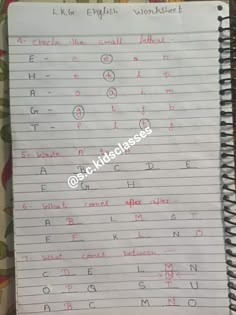 LKG English Worksheet
4. Circle the small letters:-
E - c e a n
H - h b
A - o a b m
G - g t f b
T - f l t
5. Write A
A B C D E
F G H
6. What comes after
A B L M S T
E F K L N O
7. What comes between
C D E L M N
O P Q S T U
A B C M N O
@s.c.kidsclasses